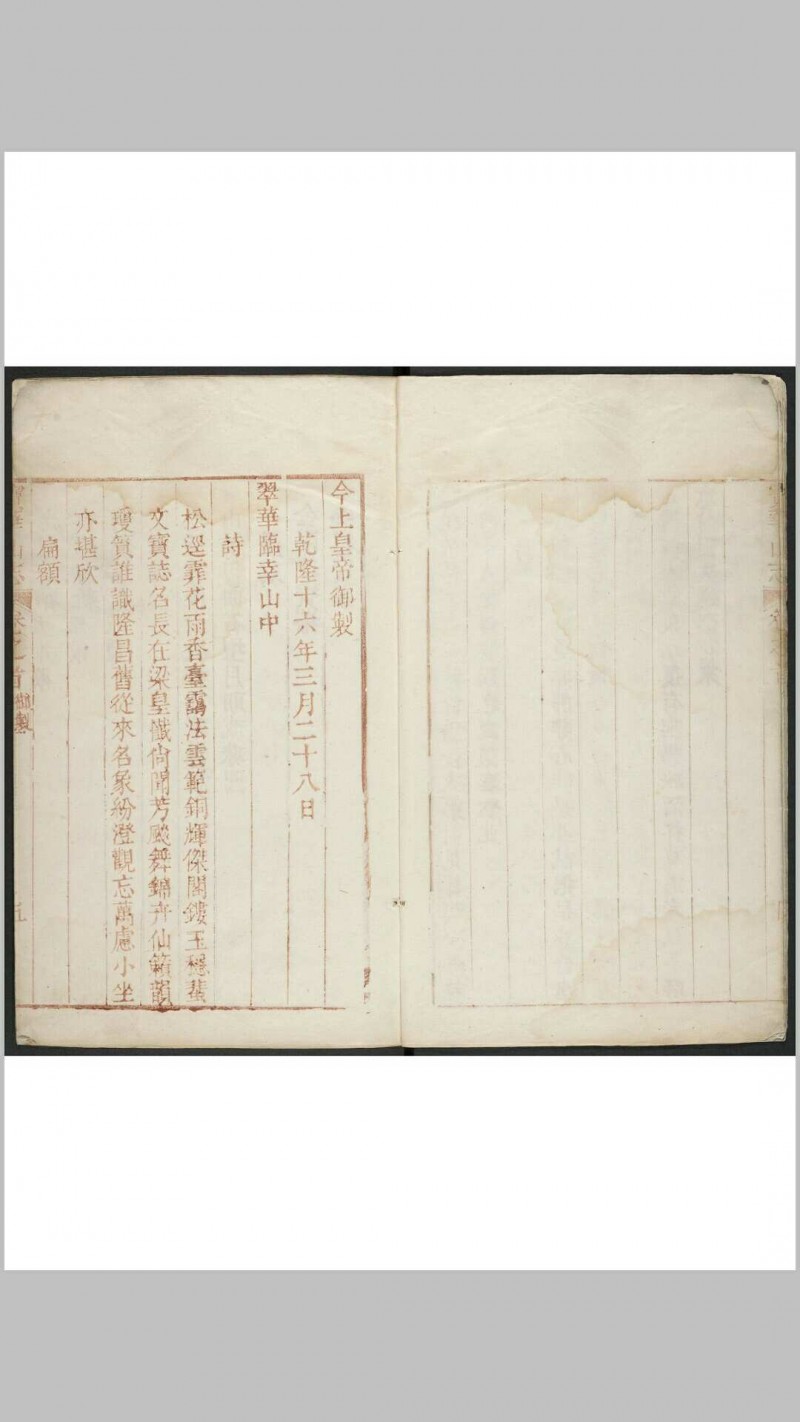 今上皇帝御製
乾隆十六年三月二十八日
翠華臨幸山中
詩
松逕霏花雨香臺靄法雲範銅輝傑閣鏤玉穩蜚
文寶誌名長在梁皇懺尚聞芳颸舞錦卉仙籟韻
瓊篔誰識隆昌舊從來名象紛澄觀忘萬慮小坐
亦堪欣
扁額
華山志
卷之首
御製
五